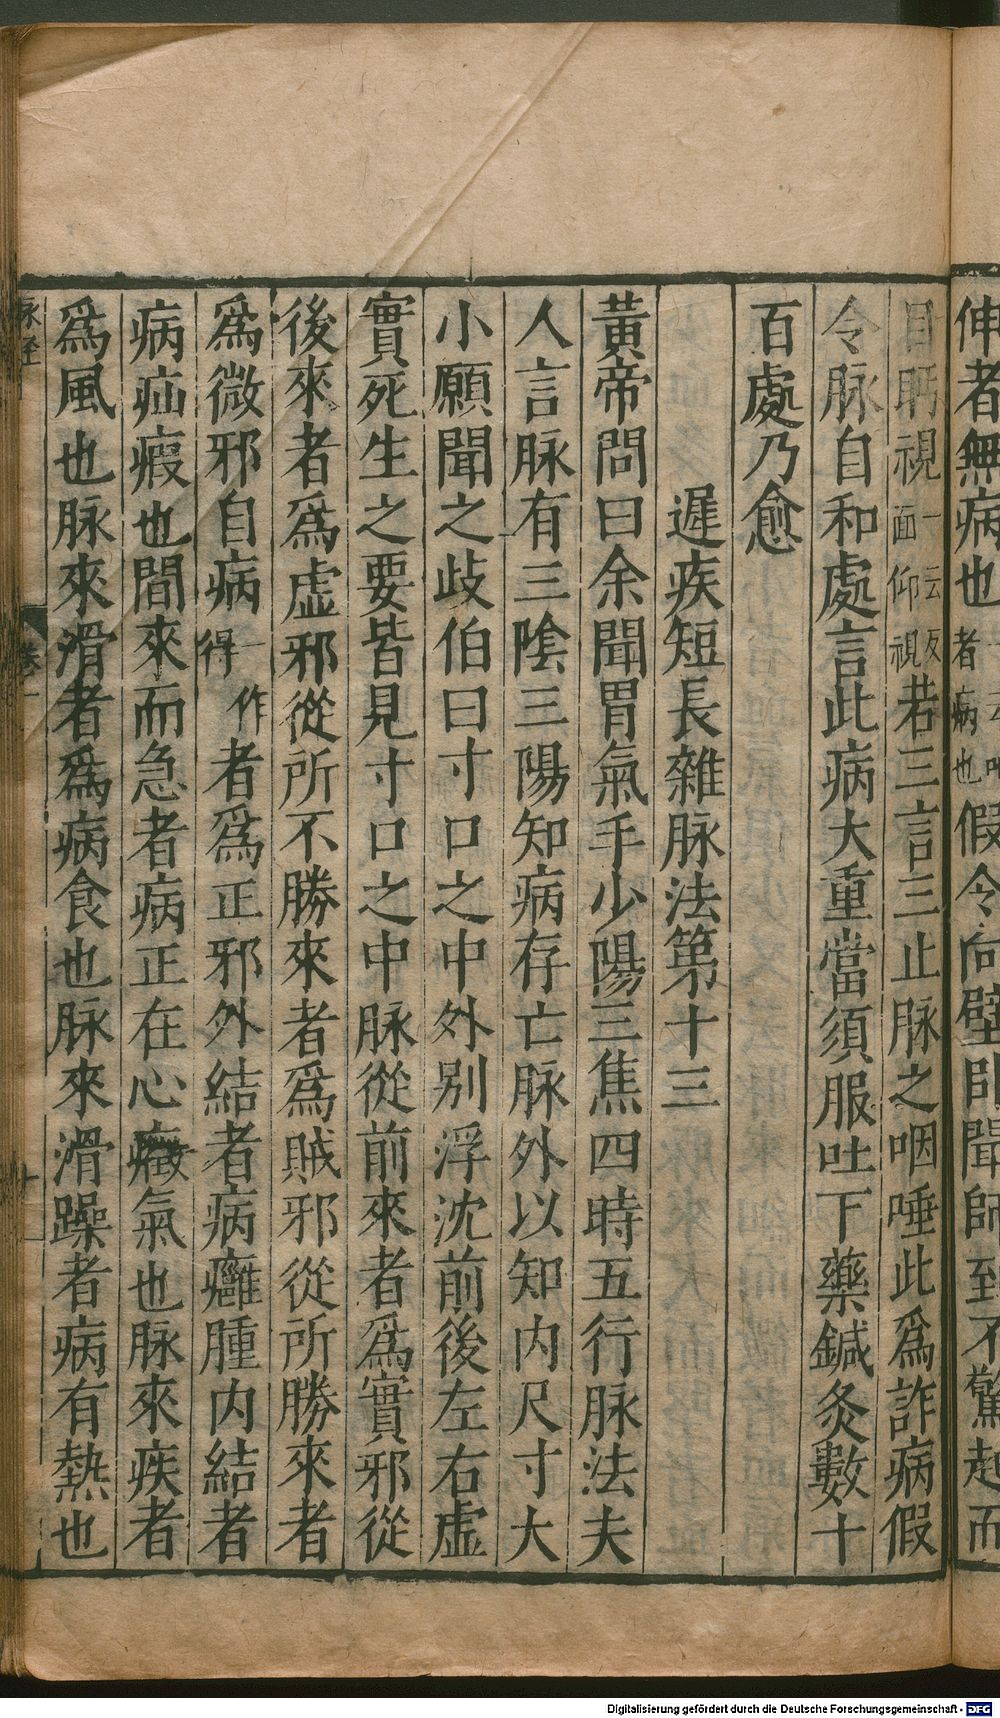 伸者無病也一云呻者病也假令向壁臥聞師到不驚起而
目眄視一云反面仰視若三言三止脉之咽唾此爲詐病假
令脉自和處言此病大重當須服吐下藥鍼灸數十
百處乃愈
遲疾短長雜脉法第十三
黃帝問曰余聞胃氣手少陽三焦四時五行脉法夫
人言脉有三陰三陽知病存亡脉外以知内尺寸大
小願聞之歧伯曰寸口之中外別浮沈前後左右虛
實死生之要皆見寸口之中脉從前來者爲實邪從
後來者爲虛邪從所不勝來者爲賊邪從所勝來者
爲微邪自病一作得者爲正邪外結者病癰腫内結者
病疝瘕也間來而急者病正在心癥氣也脉來疾者
爲風也脉來滑者爲病食也脉來滑躁者病有熱也
脉経 卷一 十一
Digitalisierung gefördert durch die Deutsche Forschungsgemeinschaft - DFG